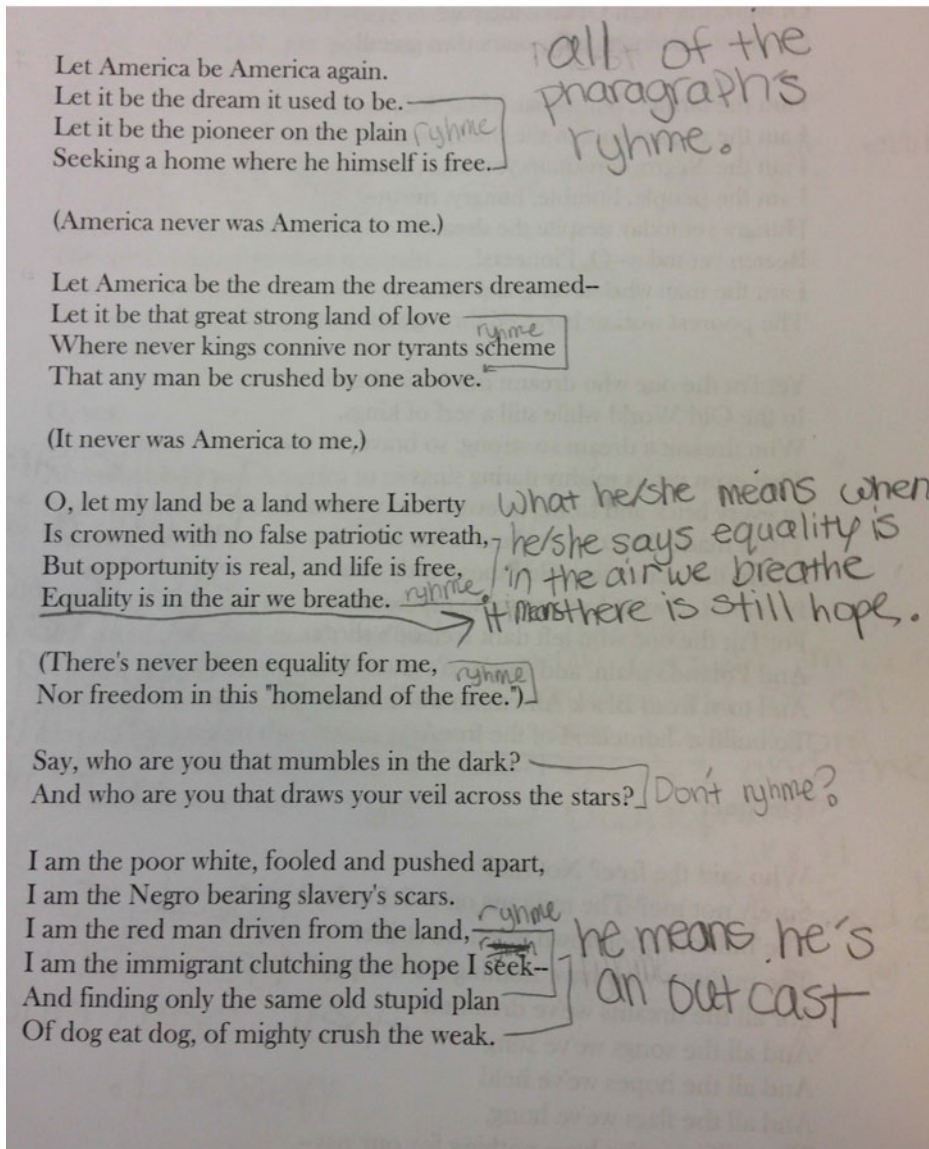 all of the
pharagraphs
ryhme.
Let America be America again.
Let it be the dream it used to be.
Let it be the pioneer on the plain ryhme
Seeking a home where he himself is free.
(America never was America to me.)
Let America be the dream the dreamers dreamed--
Let it be that great strong land of love
ryhme
Where never kings connive nor tyrants scheme
That any man be crushed by one above.
(It never was America to me,)
O, let my land be a land where Liberty
Is crowned with no false patriotic wreath,
But opportunity is real, and life is free,
Equality is in the air we breathe. ryhme.
What he/she means when
he/she says equality is
in the air we breathe
it means there is still hope.
(There's never been equality for me,
ryhme
Nor freedom in this "homeland of the free.")
Say, who are you that mumbles in the dark?
And who are you that draws your veil across the stars?
Don't ryhme?
I am the poor white, fooled and pushed apart,
I am the Negro bearing slavery's scars.
ryhme
I am the red man driven from the land,
I am the immigrant clutching the hope I seek--
And finding only the same old stupid plan
Of dog eat dog, of mighty crush the weak.
he means he's
an outcast